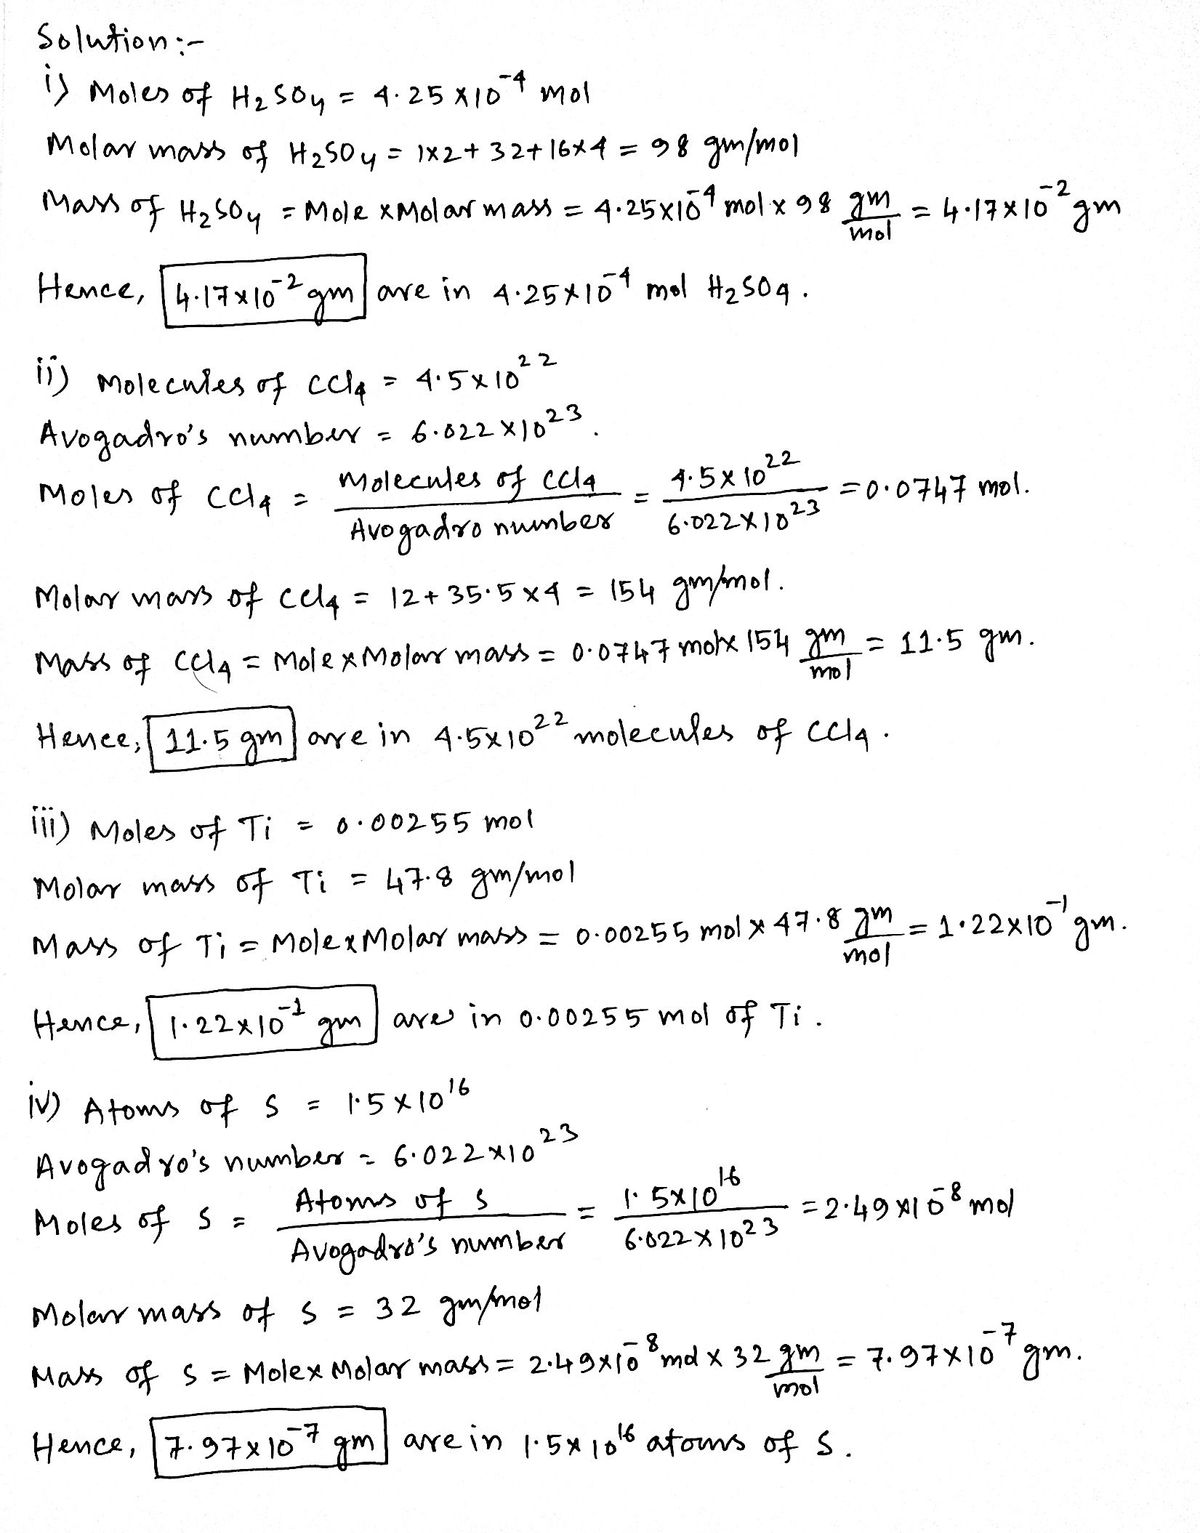 Solution:-
i) Moles of H₂SO₄ = 4.25 × 10⁻⁴ mol
Molar mass of H₂SO₄ = 1×2 + 32 + 16×4 = 98 gm/mol
Mass of H₂SO₄ = Mole × Molar mass = 4.25×10⁻⁴ mol × 98 gm/mol = 4.17×10⁻² gm
Hence, 4.17×10⁻² gm are in 4.25×10⁻⁴ mol H₂SO₄.
ii) Molecules of CCl₄ = 4.5×10²²
Avogadro's number = 6.022×10²³.
Moles of CCl₄ = Molecules of CCl₄ / Avogadro number = 4.5×10²² / 6.022×10²³ = 0.0747 mol.
Molar mass of CCl₄ = 12 + 35.5×4 = 154 gm/mol.
Mass of CCl₄ = Mole × Molar mass = 0.0747 mol × 154 gm/mol = 11.5 gm.
Hence, 11.5 gm are in 4.5×10²² molecules of CCl₄.
iii) Moles of Ti = 0.00255 mol
Molar mass of Ti = 47.8 gm/mol
Mass of Ti = Mole × Molar mass = 0.00255 mol × 47.8 gm/mol = 1.22×10⁻¹ gm.
Hence, 1.22×10⁻¹ gm are in 0.00255 mol of Ti.
iv) Atoms of S = 1.5×10¹⁶
Avogadro's number = 6.022×10²³
Moles of S = Atoms of S / Avogadro's number = 1.5×10¹⁶ / 6.022×10²³ = 2.49×10⁻⁸ mol
Molar mass of S = 32 gm/mol
Mass of S = Mole × Molar mass = 2.49×10⁻⁸ mol × 32 gm/mol = 7.97×10⁻⁷ gm.
Hence, 7.97×10⁻⁷ gm are in 1.5×10¹⁶ atoms of S.